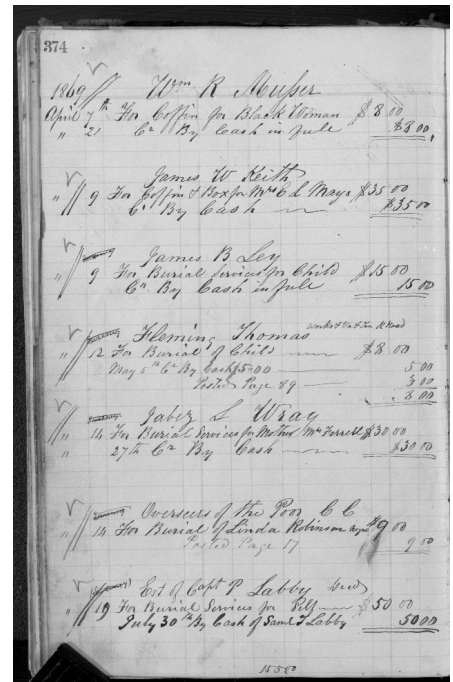 374
1869 Wm R Musser
April 7th For Coffin for Black Woman $8 00
" 21 Cr By Cash in full $8 00
James W Keith
" 9 For Coffin & Box for Mrs C L Mays $35 00
Cr By Cash $35 00
James B Ley
" 9 For Burial Services for Child $15 00
Cr By Cash in full 15 00
Fleming Thomas works & Va & Tn R Road
" 12 For Burial of Child $8 00
May 5th Cr By Cash $5 00 5 00
Posted Page 89 3 00
8 00
Jabez L Wray
" 14 For Burial Services for Mother Mrs Ferrell $30 00
" 27th Cr By Cash $30 00
Overseers of the Poor C C
" 14 For Burial of Linda Robinson $9 00
Posted Page 17 9 00
Est of Capt P Labby Decd
" 19 For Burial Services for Self $50 00
July 30th By Cash of Saml T Labby 50 00
155 00